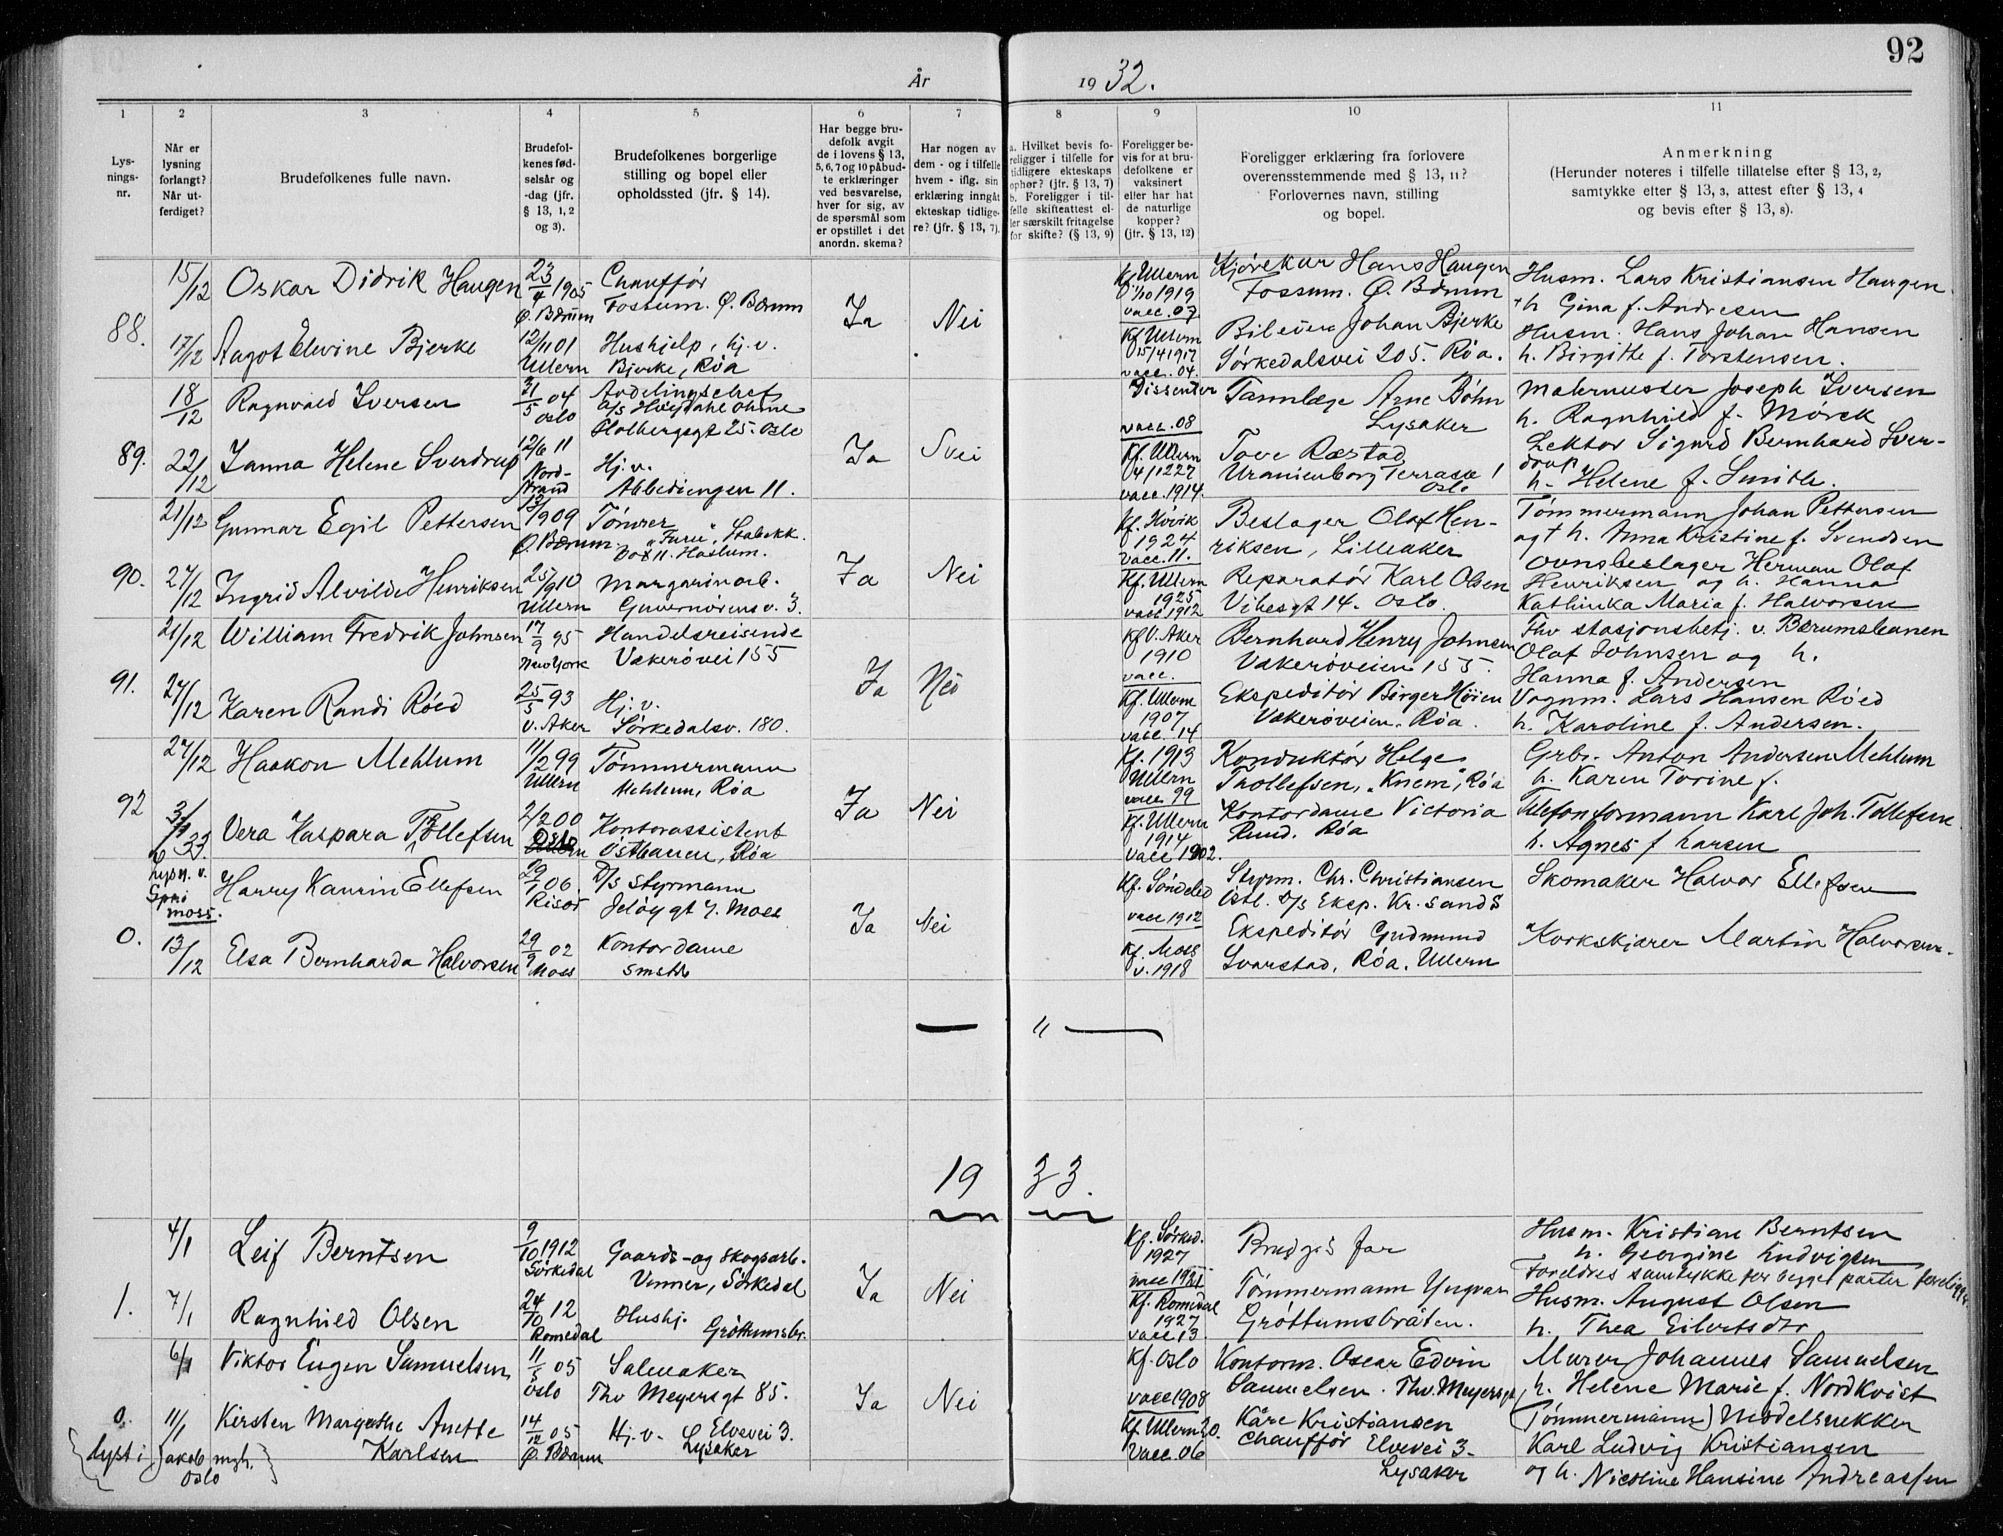 92
År 1932.
1 2 3 4 5 6 7 8 9 10 11
Lys-
nings-
nr.
Når er
lysning
forlangt?
Når ut-
ferdiget?
Brudefølkenes fulle navn.
Brudefol-
kenes fød-
selsår og
-dag (jfr.
§ 13, 1, 2
og 3).
Brudefolkenes borgerlige
stilling og bopel eller
opholdssted (jfr. § 14).
Har begge bru-
defolk avgit
de i lovens § 13,
5, 6, 7 og 10 påbud-
te erklæringer
ved besvarelse,
hver for sig, av
de spørsmål som
er opstillet i det
anordn. skema?
Har nogen av
dem - og i tilfelle
hvem - iflg. sin
erklæring inngåt
ekteskap tidlige-
re? (jfr. § 13, 7).
a. Hvilket bevis fo-
religger i tilfelle for
tidligere ekteskaps
ophør? (jfr. § 13, 7)
b. Foreligger i til-
felle skifteattest el-
ler særskilt fritagelse
for skifte? (§ 13, 9)
Foreligger be-
vis for at bru-
defolkene er
vaksinert
eller har hat
de naturlige
kopper?
(jfr. § 13, 12)
Foreligger erklæring fra forlovere
overensstemmende med § 13, 11?
Forlovernes navn, stilling
og bopel.
Anmerkning
(Herunder noteres i tilfelle tillatelse efter § 13, 2,
samtykke etter § 13, 3, attest efter § 13, 4
og bevis efter § 13, 8).
88.
15/12 Oskar Didrik Haugen
23/4 1905
Ø. Bærum
Chauffør
Fossum. Ø. Bærum
Ja Nei
Kf. Ullern
1/10 1919
vacc. 07
Kjørekar Hans Haugen
Fossum. Ø. Bærum
Husm. Lars Kristiansen Haugen.
+ h. Gina f. Andresen
17/12 Aagot Elevine Bjerke
12/11 01
Ullern
Hushjelp, hj. v.
Bjerke, Røa
Kf. Ullern
15/4 1917
vacc. 04.
Bileier Johan Bjerke
Sørkedalsvei 205. Røa.
Husm. Hans Johan Hansen
h. Birgitte f. Torstensen.
89.
18/12 Ragnvald Iversen
31/5 04
Oslo
Avdelingschef
Holbergsgt 25. Oslo
Ja Nei
Dissenter
vacc. 08
Tannlæge Arne Bøhn
Lysaker
Malermester Joseph Iversen
h. Ragnhild f. Mørck
22/12 Janna Helene Sverdrup
12/6 11
Nord-
strand
Hj. v.
Abbediengen 11.
Kf. Ullern
4/12 27
vacc. 1914.
Tove Ræstad
Uranienborg Terrasse 1
Oslo
Lektor Sigurd Bernhard Sver-
drup
h. Helene f. Smith.
90.
21/12 Gunnar Egil Pettersen
13/1 909
Ø. Bærum.
Tømrer
"Furu", Stabekk.
Box 11. Haslum.
Ja Nei
Kf. Høvik
1924
Vacc. 11.
Beslager Olaf Hen-
riksen, Lilleaker
Tømmermann Johan Pettersen
og + h. Anna Kristine f. Svendsen
27/12 Ingrid Alvilde Henriksen
25/9 10
Ullern
Margarinarb.
Guvernørensv. 3.
Kf. Ullern
1925
vacc 1912
Reparatør Karl Olsen
Vibesgt 14. Oslo.
Ovnsbeslager Herman Olaf
Henriksen og h. Hanna
Kathinka Maria f. Halvorsen
91.
21/12 William Fredrik Johnsen
17/9 95
New York
Handelsreisende
Vækerøvei 155
Ja Nei
Kf V. Aker
1910
vacc.
Bernhard Henry Johnsen
Vækerøveien 155.
Fhv stasjonsbetj. v. Bærumsbanen
Olaf Johnsen og h.
Hanna f. Andersen
27/12 Karen Randi Røed
25/5 93
V. Aker
Hj. v.
Sørkedalsv. 180.
Kf. Ullern
1907
vacc. 14
Ekspeditør Birger Høien
Vækerøveien. Røa.
Vognm. Lars Hansen Røed
h. Karoline f. Andersen.
92
27/12 Haakon Mehlum
11/2 99
Ullern
Tømmermann
Mehlum, Røa
Ja Nei
Kf. 1913
Ullern
vacc 99
Konduktør Helge
Thollefsen, "Knem", Røa
Grbr. Anton Andersen Mehlum
h. Karen Torine f.
3/1 33. Vera Kaspara Tollefsen
2/2 00
Oslo
Kontorassistent
Østbanen, Røa
Kf. Ullern
1914
vacc 1902.
Kontordame Victoria
Rund. Røa
Telefonformann Karl Joh. Tollefsen.
h. Agnes f. Larsen
0.
Lysn. v.
Spr. i
Moss.
Harry Kaurin Ellefsen
29/1 06.
Risør
D/S styrmann
Jeløy gt 7. Moss
Ja Nei
Kf. Søndeled
vacc 1912
Styrm. Chr. Christiansen
Østl. D/S Eksp. Kr. sand S
Skomaker Halvor Ellefsen
13/12 Elsa Bernharda Halvorsen
29/9 02
Moss
Kontordame
smstds
Kf. Moss
v. 1918
Ekspeditør Gudmund
Svarstad, Røa. Ullern
Korkskjærer Martin Halvorsen.
— " —
1933.
1.
4/1 Leif Berntsen
9/10 1912
Sørkedal
Gaards- og skogsarb.
Venner, Sørkedal
Ja Nei
Kf. Sørked.
1927
vacc 1921
Brudgs far
Husm. Kristian Berntsen
h. Georgine Ludvigsen
Foreldres samtykke for begge parter foreligger
7/1 Ragnhild Olsen
24/10 12
Romedal
Hushj.
Grøttumsbr.
Kf. Romedal
1927
vacc 13
Tømmermann Yngvar
Grøttumsbråten.
Husm. August Olsen
h. Thea Eilertsdtr
0.
6/1 Viktor Eugen Samuelsen
11/5 05
Oslo
Salmaker
Thv Meyersgt 85.
Ja Nei
Kf. Oslo
vacc 1908
Kontorm. Oscar Edvin
Samuelsen. Thv. Meyersgt
Murer Johannes Samuelsen
h. Helene Marie f. Nordkvist
11/1 Kirsten Margrethe Anette
Karlsen
14/12 05
Ø. Bærum
Hj. v. Elvevei 3.
Lysaker
Kf. Ullern 20.
Vacc. 06
Kåre Kristiansen
Chauffør Elvevei 3-
Lysaker
(Tømmermann) Modelsnekker
Karl Ludvig Kristiansen
og h. Nicoline Hansine Andreassen
{lyst i Jakob mgh.}
Oslo